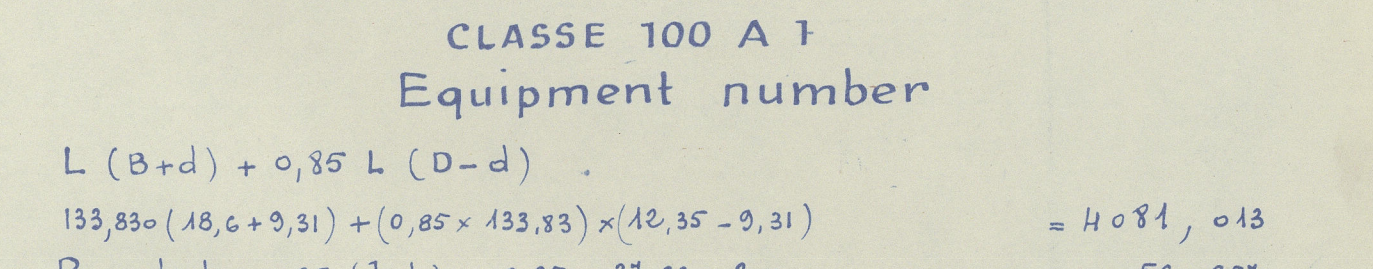 CLASSE 100 A 1
Equipment number
L (B+d) + 0,85 L (D-d) .
133,830 (18,6 + 9,31) + (0,85 x 133,83) x (12,35 - 9,31) = 4081, 013